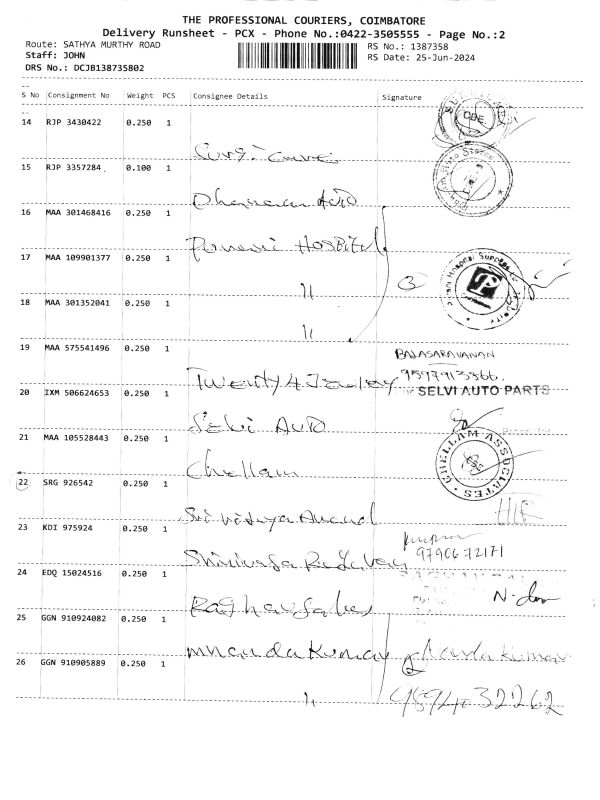 THE PROFESSIONAL COURIERS, COIMBATORE
Delivery Runsheet - PCX - Phone No.:0422-3505555 - Page No.:2
Route: SATHYA MURTHY ROAD
RS No.: 1387358
Staff: JOHN
RS Date: 25-Jun-2024
DRS No.: DCJB138735802
S No Consignment No Weight PCS Consignee Details Signature
14 RJP 3430422 0.250 1
CBE
15 RJP 3357284 0.100 1
Dhanavan Auto
16 MAA 301468416 0.250 1
Hospital
17 MAA 109901377 0.250 1
Hospital Supplies
3
18 MAA 301352041 0.250 1
19 MAA 575541496 0.250 1
BALASARAVANAN
Twenty 4 Jewlery
SELVI AUTO PARTS
20 IXM 506624653 0.250 1
Selvi Auto
21 MAA 105528443 0.250 1
Chellam
CHELLAM ASSOCIATES
22 SRG 926542 0.250 1
Sri Vidhya Anand
23 KDI 975924 0.250 1
9790672171
24 EDQ 15024516 0.250 1
25 GGN 910924082 0.250 1
26 GGN 910905889 0.250 1